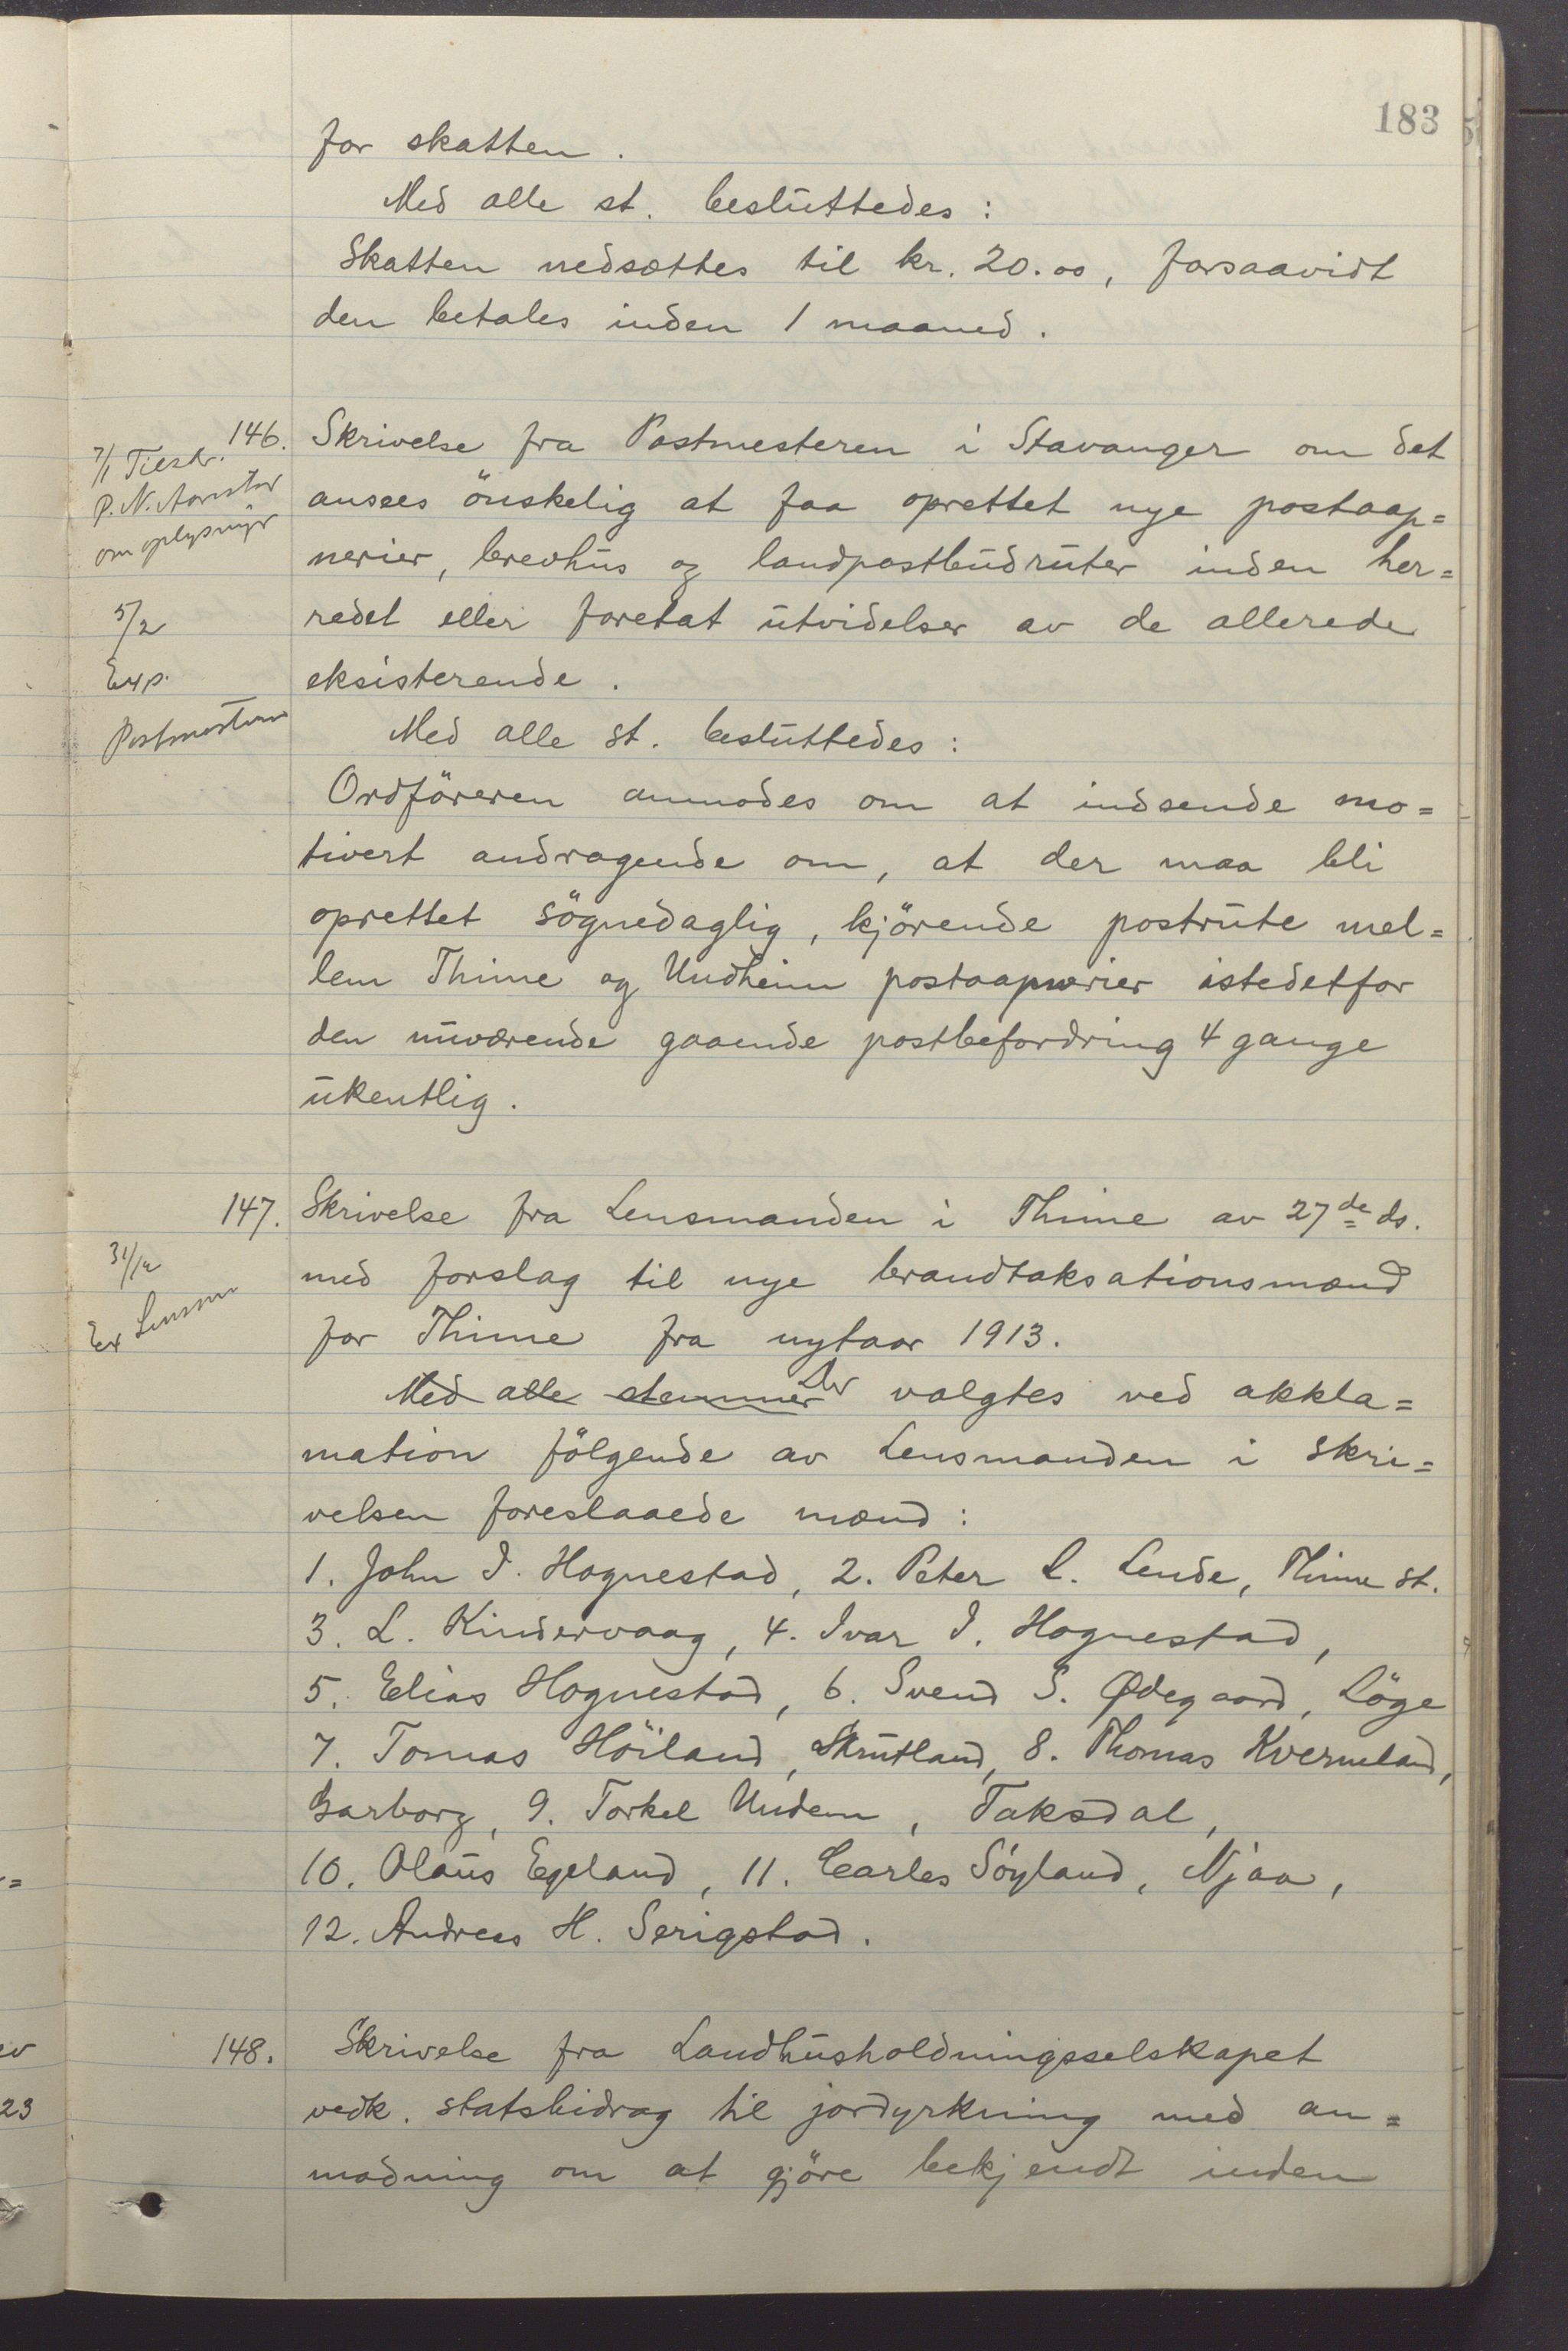 183
for skatten.
Med alle st. besluttedes:
Skatten nedsættes til kr. 20.00, forsaavidt
den betales inden 1 maaned.
146. Skrivelse fra Postmesteren i Stavanger om det
7/1 Tilskr.
P. N. Aarestad
om oplysnigr
ansees önskelig at faa oprettet nye postaap=
nerier, brevhus og landpostbudruter inden her=
redet eller foretat utvidelser av de allerede
eksisterende.
5/2
Exp.
Postmesteren
Med alle st. besluttedes:
Ordföreren anmodes om at indsende mo=
tivert andragende om, at der maa bli
oprettet sögnedaglig, kjörende postrute mel=
lem Thime og Undheim postaapnerier istedetfor
den nuværende gaaende postbefordring 4 gange
ukentlig.
147. Skrivelse fra Lensmanden i Thime av 27de ds.
31/12
Ex Lensm
med forslag til nye brandtaksationsmænd
for Thime fra nytaar 1913.
Med alle stemmer Der valgtes ved akkla=
mation fölgende av Lensmanden i skri=
velsen foreslaaede mænd:
1. John I. Hognestad, 2. Peter L. Lende, Thime st.
3. L. Kindervaag, 4. Ivar I. Hognestad,
5. Elias Hognestad, 6. Svend S. Ødegaard, Löge
7. Tomas Höiland, Skrutland, 8. Thomas Kverneland,
Garborg, 9. Torkel Undem, Taksdal,
10. Olaus Egeland, 11. Carles Söyland, Njaa,
12. Andreas H. Serigstad.
148. Skrivelse fra Landhusholdningsselskapet
vedk. statsbidrag til jordyrkning med an=
modning om at gjöre bekjendt inden
23